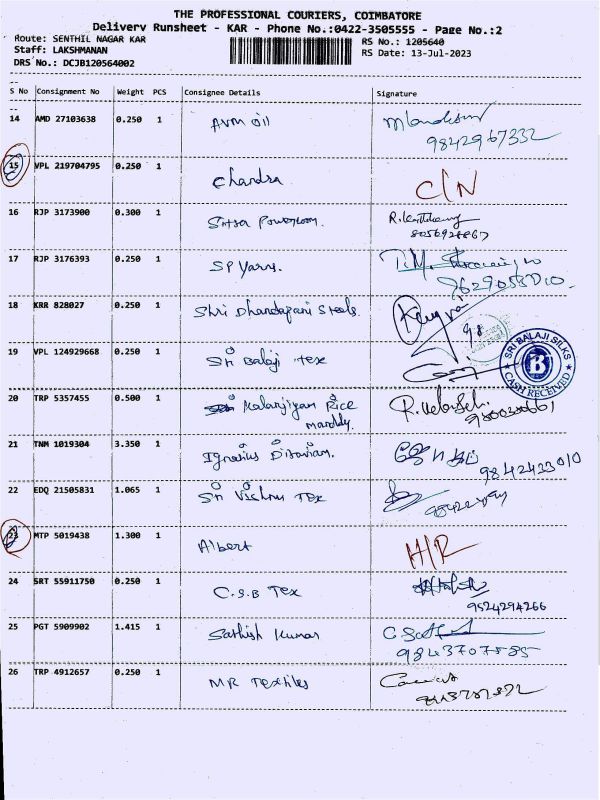 THE PROFESSIONAL COURIERS, COIMBATORE
Delivery Runsheet - KAR - Phone No.:0422-3505555 - Page No.:2
Route: SENTHIL NAGAR KAR
RS No.: 1205640
Staff: LAKSHMANAN
RS Date: 13-Jul-2023
DRS No.: DCJB120564002
S No Consignment No Weight PCS Consignee Details Signature
14 AMD 27103638 0.250 1 AVM oil
9842967332
15 VPL 219704795 0.250 1 Chandra C/N
16 RJP 3173900 0.300 1
17 RJP 3176393 0.250 1 SP Yarns.
18 KRR 828027 0.250 1 Shri Dhandapani Steels.
98
19 VPL 124929668 0.250 1 Sri Balaji Tex
SRI BALAJI SILKS
B
CASH RECEIVED
20 TRP 5357455 0.500 1 Kalanjiyam Rice
21 TNM 1019304 3.350 1 Ignatius
9842433010
22 EDQ 21505831 1.065 1 Sri Vishnu Tex
23 MTP 5019438 1.300 1 Albert H/R
24 SRT 55911750 0.250 1 C.S.B Tex
9524294266
25 PGT 5909902 1.415 1 Sathish Kumar
9843707585
26 TRP 4912657 0.250 1 MR Textiles